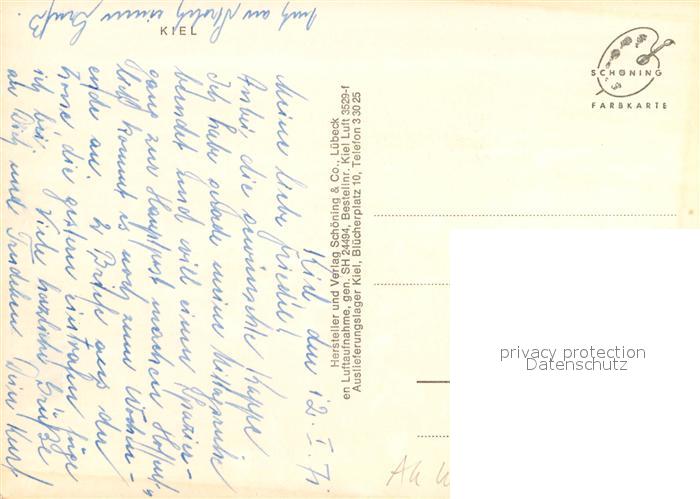 KIEL
SCHÖNING
FARBKARTE
Kiel den 12. I. 71
Meine liebe Friedel!
Anbei die gewünschte Kappe
Ich habe gerade meine Mittagsruhe
beendet und will einen Spazier-
gang zur Hauptpost machen. Hoffent-
lich kommt es noch zum Wochen-
ende an. 2 Briefe aus der
die gestern eintrafen füge
ich bei. Viele herzliche Grüße
an Dich und Dein Kurt
auch an einen Gruß.
Hersteller und Verlag Schöning & Co., Lübeck
en Luftaufnahme, gen. SH 24494, Bestellnr. Kiel Luft 3529-f
Auslieferungslager Kiel, Blücherplatz 10, Telefon 3 30 25
privacy protection
Datenschutz
AK